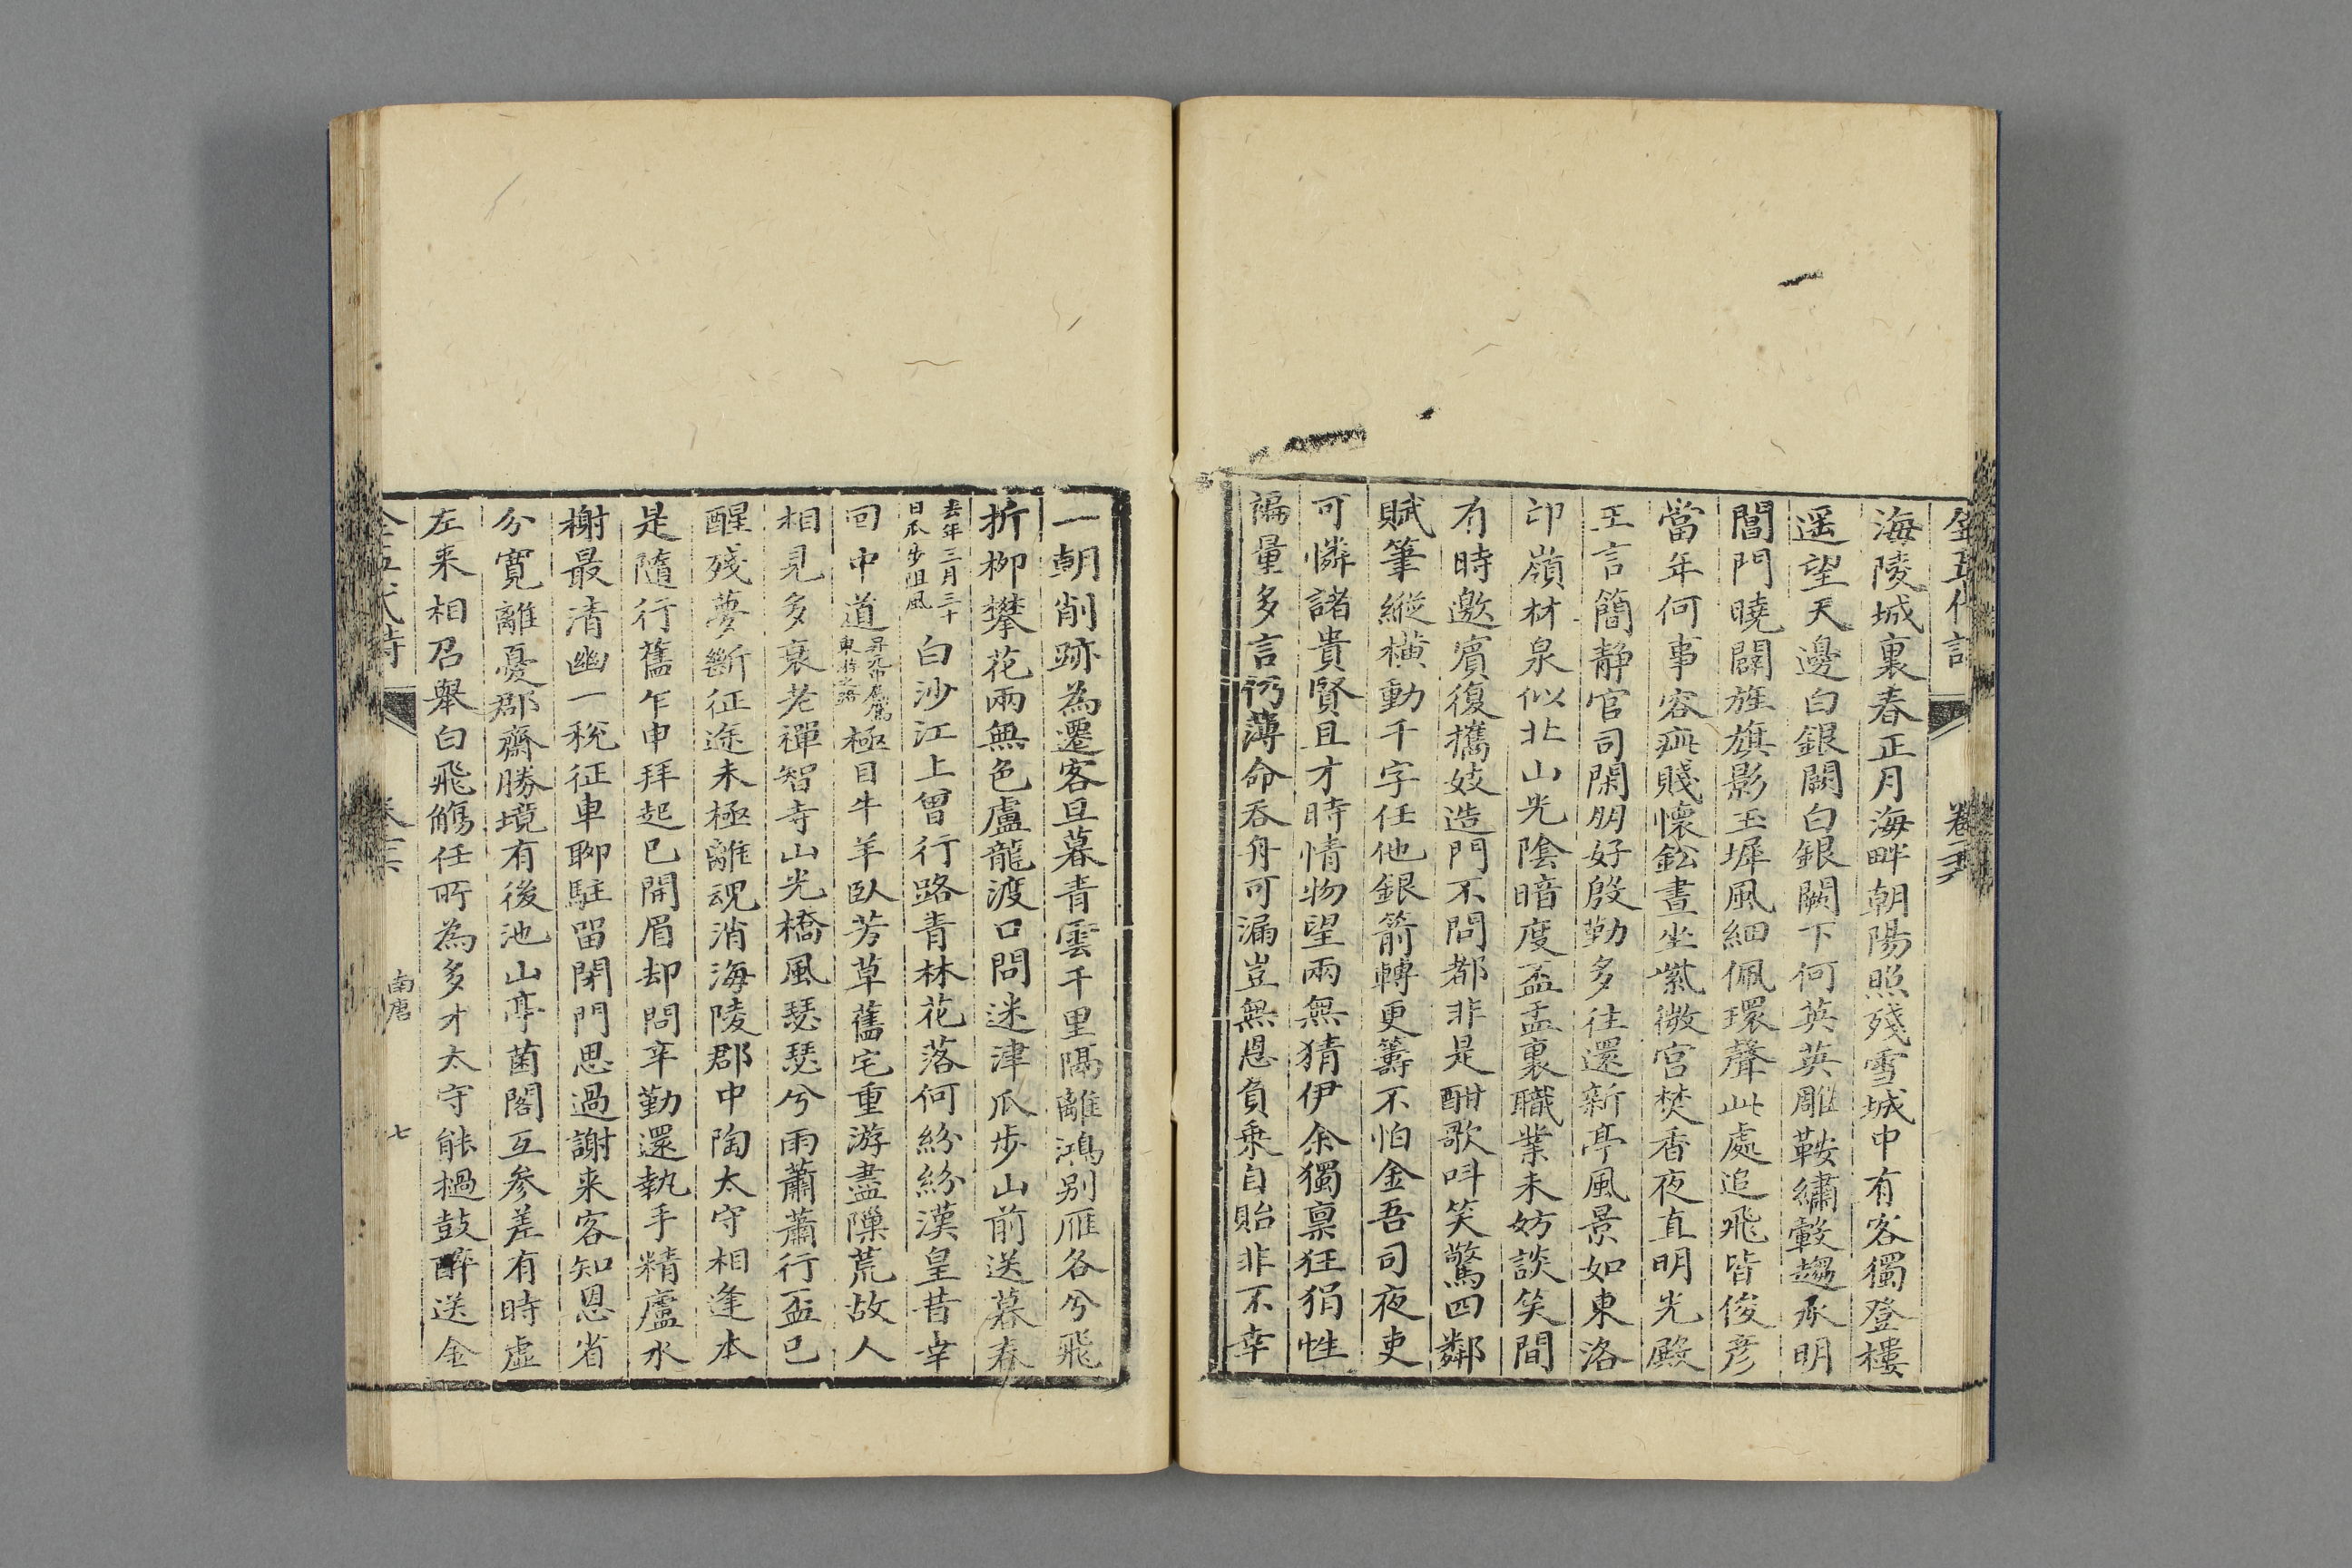 全五代詩 卷
海陵城裏春正月海畔朝陽照殘雪城中有客獨登樓
遥望天邊白銀闕白銀闕下何英英雕鞍繡轂趨承明
閶門曉闢旌旗影玉墀風細佩環聲此處追飛皆俊彥
當年何事容疵賤懷鈆晝坐紫微宮焚香夜直明光殿
王言簡静官司閑朋好殷勤多往還新亭風景如東洛
邙嶺林泉似北山光陰暗度盃盂裏職業未妨談笑間
有時邀賓復攜妓造門不問都非是酣歌呌笑驚四鄰
賦筆縱橫動千字任他銀箭轉更籌不怕金吾司夜吏
可憐諸貴賢且才時情物望兩無猜伊余獨稟狂狷性
褊量多言仍薄命吞舟可漏豈無恩負乗自貽非不幸
一朝削跡為遷客旦暮青雲千里隔離鴻别雁各兮飛
折栁攀花兩無色盧龍渡口問迷津瓜步山前送暮春
去年三月三十
日瓜步阻風
白沙江上曾行路青林花落何紛紛漢皇昔幸
回中道
極目牛羊臥芳草舊宅重游盡隟荒故人
相見多衰老禪智寺山光橋風瑟瑟兮雨蕭蕭行盃已
醒殘夢斷征途未極離魂消海陵郡中陶太守相逢本
是隨行舊乍申拜起已開眉却問辛勤還執手精廬水
榭最清幽一稅征車聊駐留閉門思過謝来客知恩省
分寬離憂郡齋勝境有後池山亭菌閣互參差有時虛
左来相召舉白飛觴任所為多才太守能撾鼓醉送金
全五代詩 卷 南唐 七